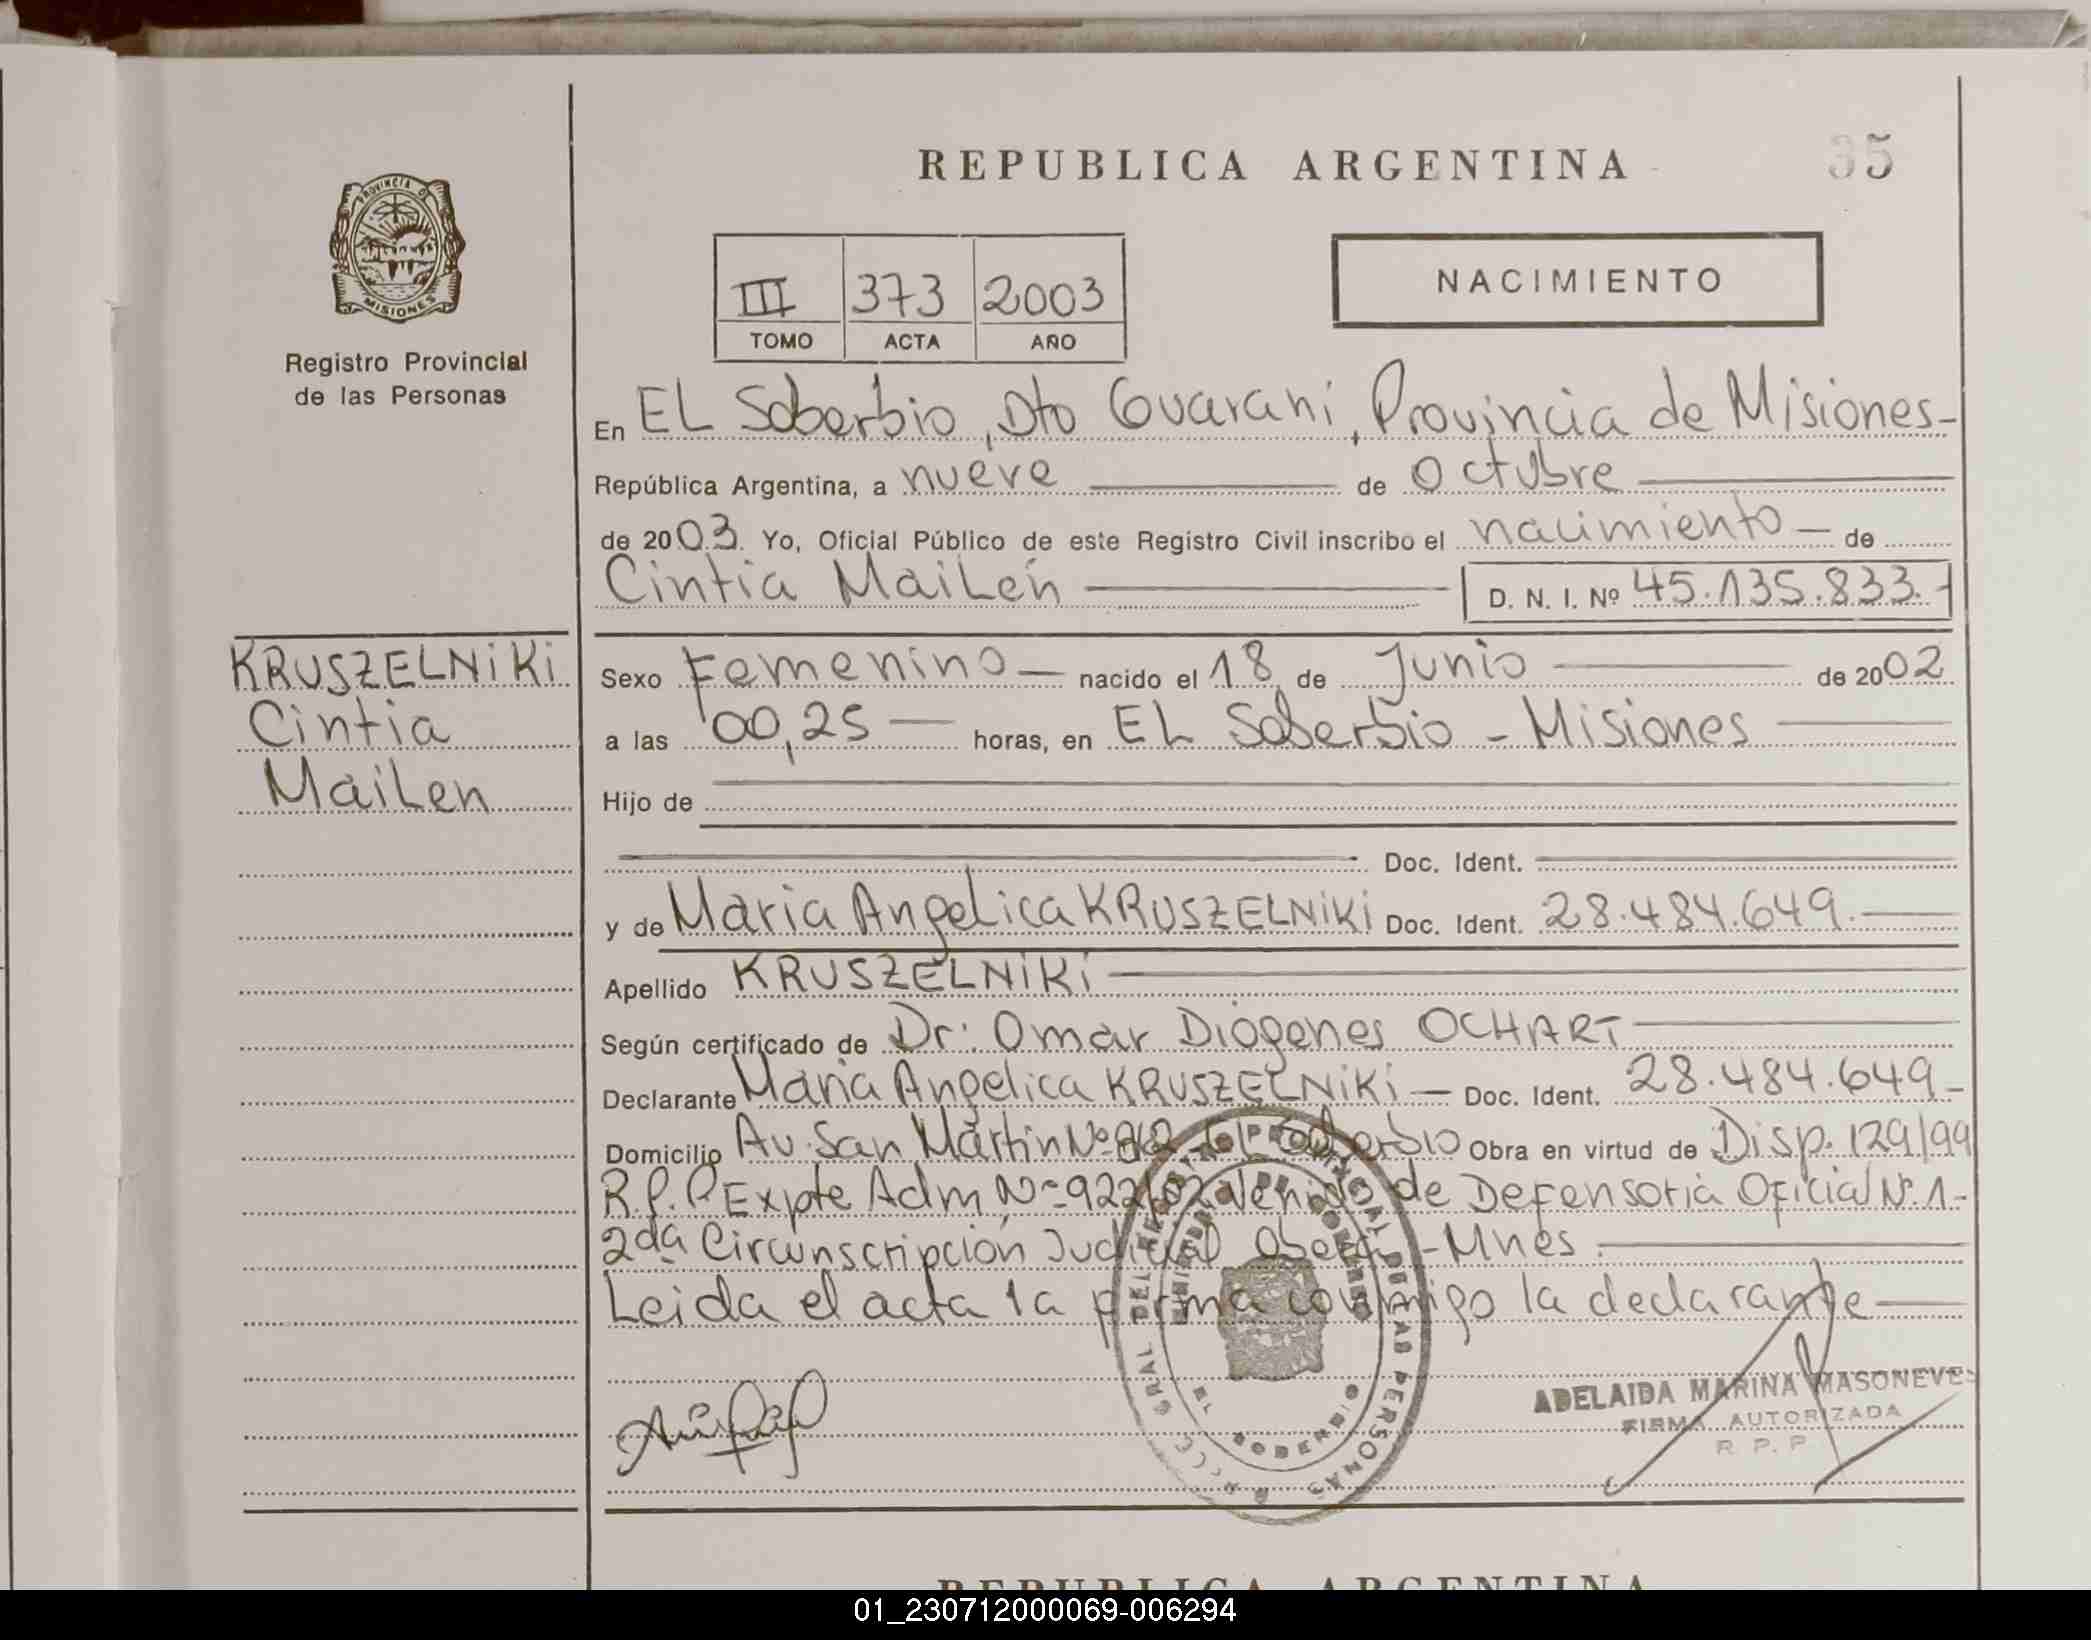 REPUBLICA ARGENTINA
35
PROVINCIA DE
MISIONES
Registro Provincial
de las Personas
III 373 2003
TOMO ACTA AÑO
NACIMIENTO
En EL Soberbio, Dto Guarani, Provincia de Misiones-
República Argentina, a nueve de Octubre
de 2003. Yo, Oficial Público de este Registro Civil inscribo el nacimiento — de
Cintia MaiLén D. N. I. Nº 45.135.833.-
KRUSZELNiKi
Cintia
MaiLen
Sexo Femenino — nacido el 18 de Junio de 2002
a las 00,25 — horas, en EL Soberbio - Misiones
Hijo de
Doc. Ident.
y de Maria Angelica KRUSZELNiKi Doc. Ident. 28.484.649.
Apellido KRUSZELNiKi
Según certificado de Dr: Omar Diógenes OCHART
Declarante Maria Angelica KRUSZELNiKi — Doc. Ident. 28.484.649-
Domicilio Av. San Martin Nº El Soberbio Obra en virtud de Disp. 129/99
R.P.P Expte Adm Nº 922/02 Venido de Defensoria Oficial Nº. 1-
2da Circunscripción Judicial Oberá - Mnes.
Leida el acta la firma conmigo la declarante
ADELAIDA MARINA MASONEVE
FIRMA AUTORIZADA
R. P. P
REPUBLICA ARGENTINA
01_230712000069-006294